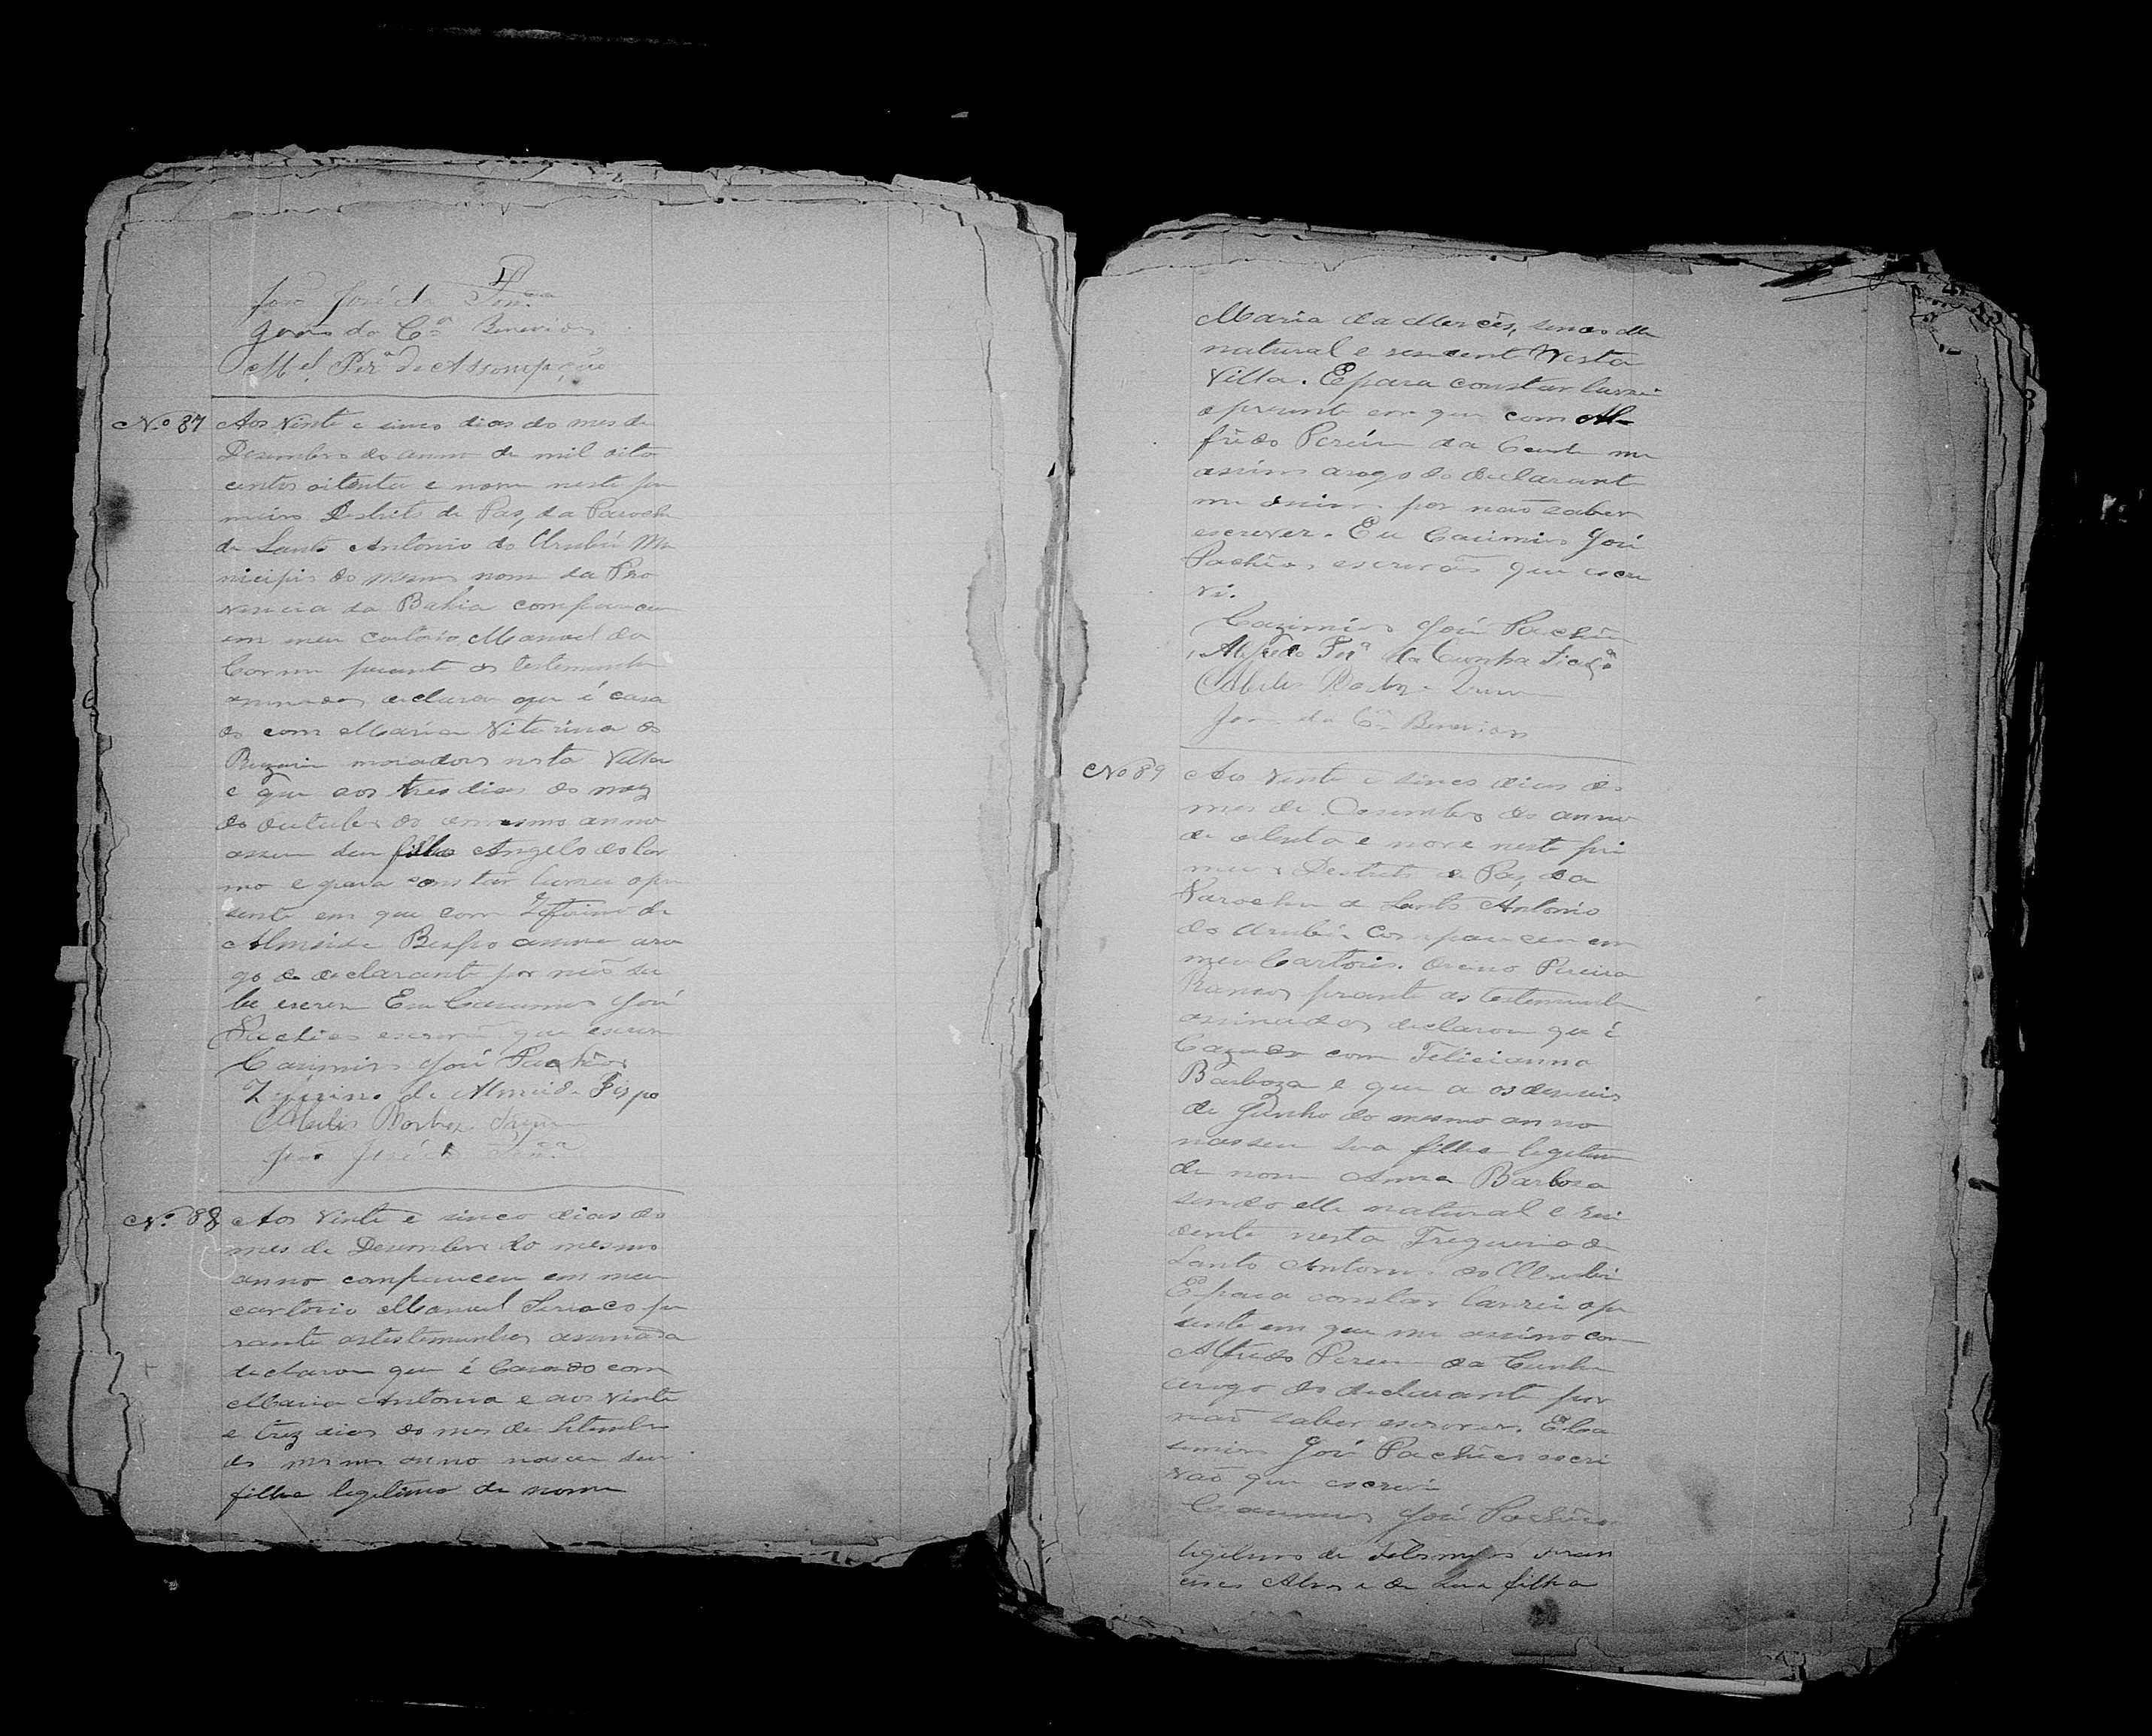 João José de
João da Cª Benevides
Mel. Perª de Assompção
No 87 Aos Vinte e sinco dias do mes de
Desembro do anno de mil oito
centos oitenta e nove neste pri
meiro Destrito de Paz, da Parochia
de Santo Antonio do Urubú Mu
nicipio do mesmo nome da Pro
vencia da Bahia compareceu
em meu cartorio Manoel do
Carmo perante as testemunhas
declarou que é casa
do com Maria Viturina do
moradores nesta Villa
e que aos tres dias do mez
de Outubro do mesmo anno
nasceu seu filho Angelo do Car
mo e para constar lavrei o pre
sente em que com Zeferino de
Almeida Bispo assino aro
go do declarante por não sa
ber escrever Eu Casimiro José
Pachêco escrivão que escrevi
Casimiro José Pachêco
Zeferino de Almeida Bispo
João José de
No. 88 Aos Vinte e sinco dias do
mes de Desembro do mesmo
anno compareceu em meu
cartorio Manoel Seriaco pe
rante as testemunhas assinada
declarou que é Casado com
Maria Antonia e aos Vinte
e trez dias do mes de Setembro
do mesmo anno nasceu sua
filha legitima de nome
Maria da Mercês, sendo elle
natural e residente Nesta
Villa. E para constar lavrei
o presente em que com Al-
frêdo Pereira da Cunha me
assino arogo do declarante
me assino por não saber
escrever. Eu Casimiro José
Pachêco escrivão que escre
vi.
Cazimiro José Pachêco
Alfrêdo Perª da Cunha
João da Cª Benevides
No 89 Aos Vinte e sinco dias do
mes de Desembro do anno
de oitenta e nove neste pri
meiro Destrito de Paz, da
Parochia de Santo Antonio
do Urubú Compareceu em
meu Cartorio. Pereira
Ramos perante as testemunhas
assinadas declarou que é
Cazado com Felicianna
Barboza e que a os deseseis
de Junho do mesmo anno
nasseu sua filha legitima
de nome Anna Barbosa
sendo elle natural e resi
dente nesta Freguesia de
Santo Antonio do Urubú
E para constar lavrei o pre
sente em que me assino com
Alfredo Pereira da Cunha
arogo do declarante por
não saber escrever. Eu Ca
simiro José Pachêco escri
vão que escrevi
Casimiro José Pachêco
legitimo de
Alves e de sua filha